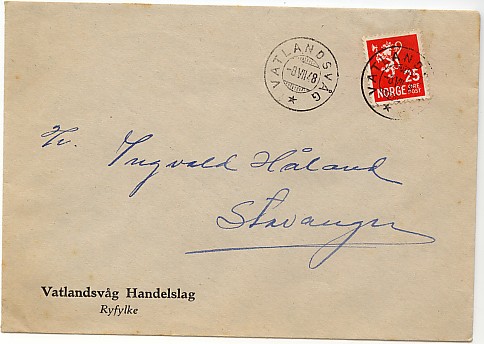 VATLANDSVÅG
-8 VII 48
VATLANDS
25
NORGE
ØRE
POST
Hr. Ingvald Håland
Stavanger
Vatlandsvåg Handelslag
Ryfylke